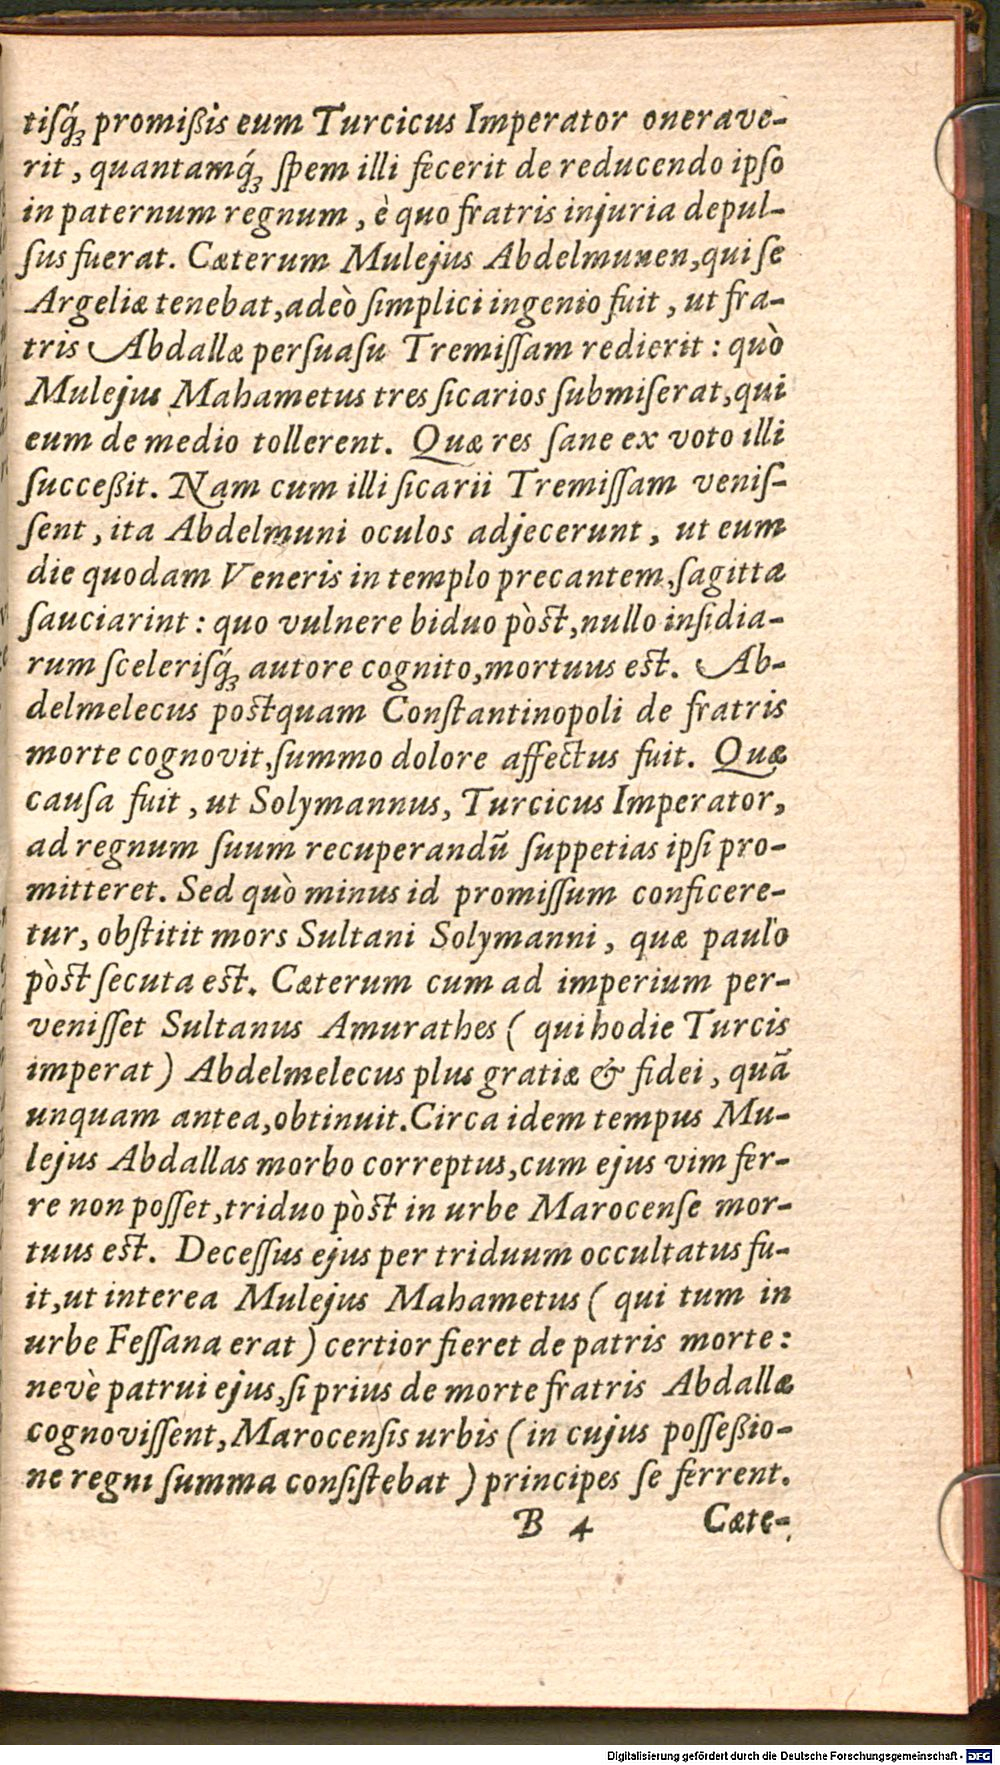 tiſq́ꝫ promißis eum Turcicus Imperator onerave-
rit, quantamq́ꝫ ſpem illi fecerit de reducendo ipſo
in paternum regnum, è quo fratris injuria depul-
ſus fuerat. Cæterum Mulejus Abdelmunen, qui ſe
Argeliæ tenebat, adeò ſimplici ingenio fuit, ut fra-
tris Abdallæ perſuaſu Tremiſſam redierit: quò
Mulejus Mahametus tres ſicarios ſubmiſerat, qui
eum de medio tollerent. Quæ res ſane ex voto illi
ſucceßit. Nam cum illi ſicarii Tremiſſam veniſ-
ſent, ita Abdelmuni oculos adjecerunt, ut eum
die quodam Veneris in templo precantem, ſagittæ
ſauciarint: quo vulnere biduo pòſt, nullo inſidia-
rum ſceleriſq́ꝫ autore cognito, mortuus eſt. Ab-
delmelecus poſtquam Conſtantinopoli de fratris
morte cognovit, ſummo dolore affectus fuit. Quæ
cauſa fuit, ut Solymannus, Turcicus Imperator,
ad regnum ſuum recuperandũ ſuppetias ipſi pro-
mitteret. Sed quò minus id promiſſum conficere-
tur, obſtitit mors Sultani Solymanni, quæ paulò
pòſt ſecuta eſt. Cæterum cum ad imperium per-
veniſſet Sultanus Amurathes (qui hodie Turcis
imperat) Abdelmelecus plus gratiæ & fidei, quã
unquam antea, obtinuit. Circa idem tempus Mu-
lejus Abdallas morbo correptus, cum ejus vim fer-
re non poſſet, triduo pòſt in urbe Marocenſe mor-
tuus eſt. Deceſſus ejus per triduum occultatus fu-
it, ut interea Mulejus Mahametus (qui tum in
urbe Feſſana erat) certior fieret de patris morte:
nevè patrui ejus, ſi prius de morte fratris Abdallæ
cognoviſſent, Marocenſis urbis (in cujus poſſeßio-
ne regni ſumma conſiſtebat) principes ſe ferrent.
B 4 Cæte-
Digitalisierung gefördert durch die Deutsche Forschungsgemeinschaft - DFG